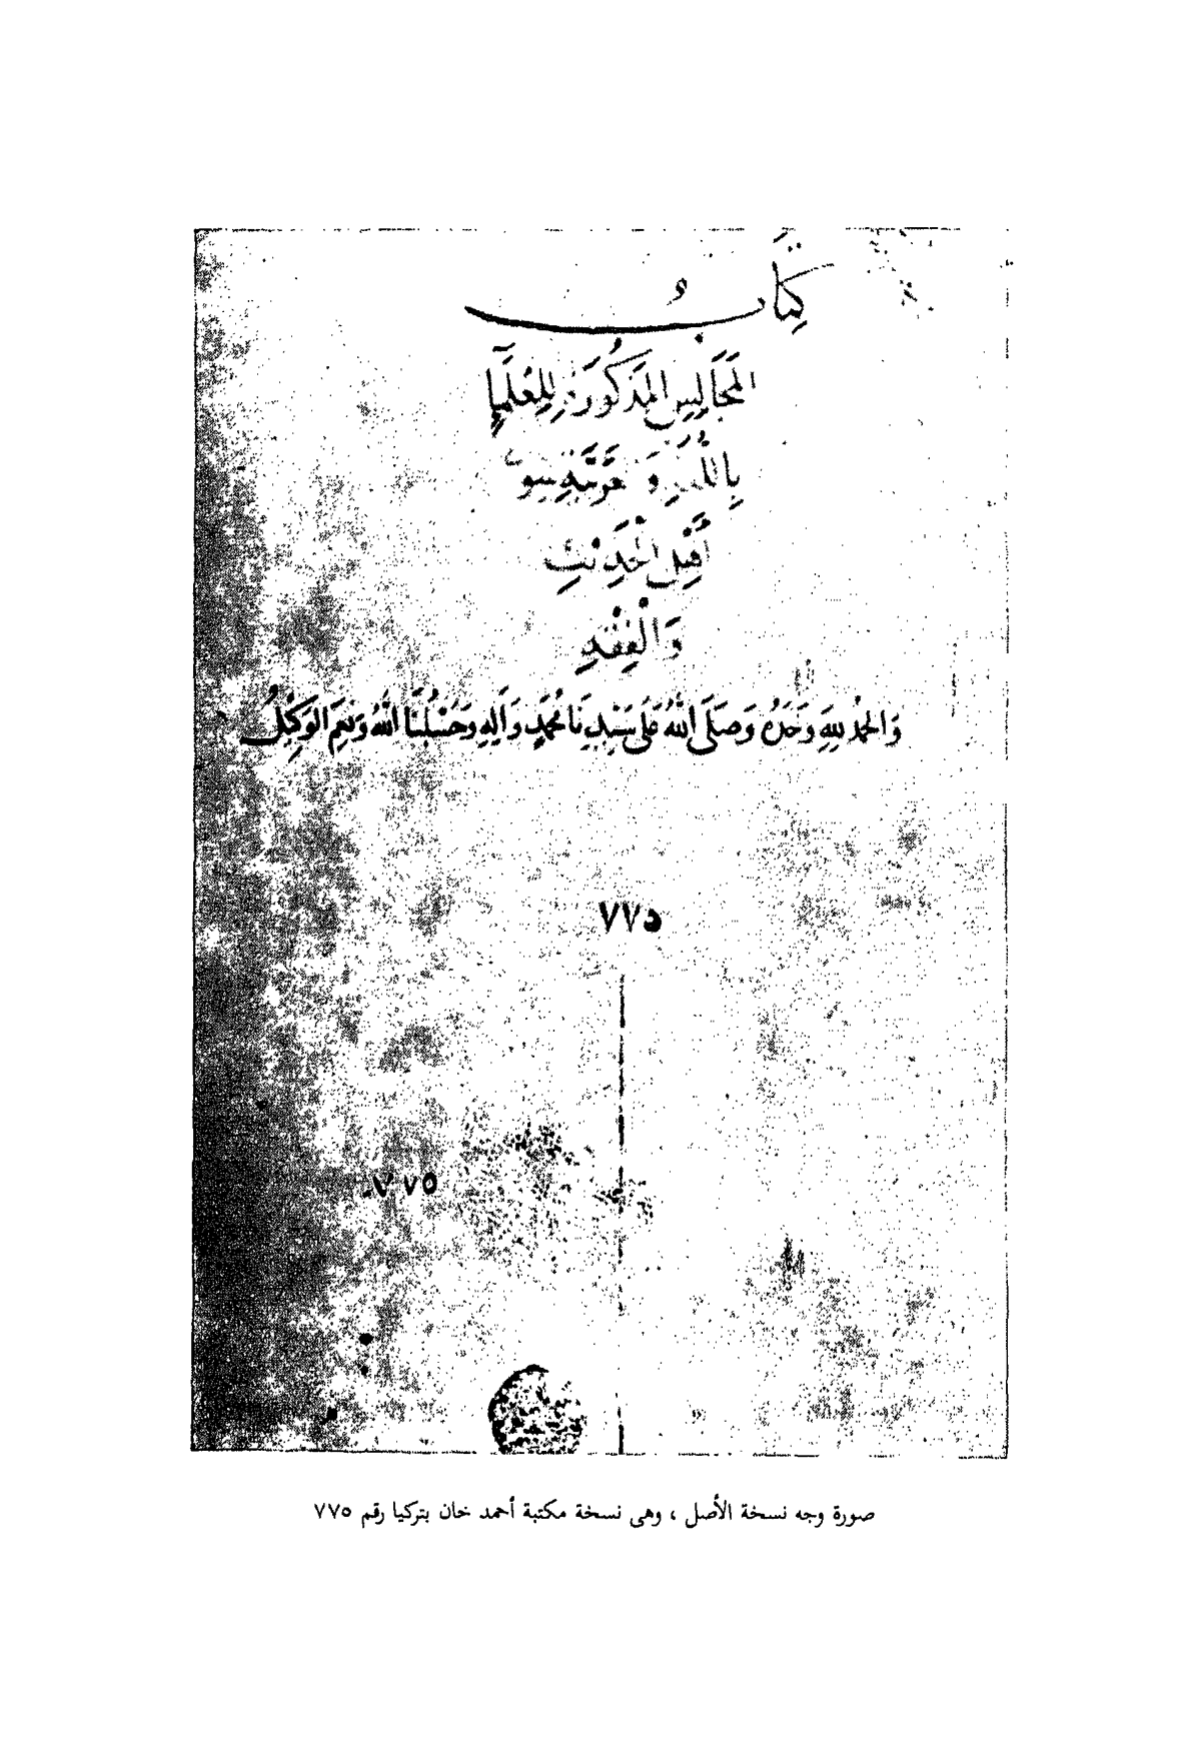 كِتَابُ
المَجَالِسِ المَذكُورَةِ لِلعُلَمَاءِ
بِاللُّغَةِ وَالعَرَبِيَّةِ سِوَى
أَهْلِ الحَدِيْثِ
وَالْفِقْهِ
وَالحَمْدُ للهِ وَحْدَهُ وَصَلَّى اللهُ عَلَى سَيِّدِنَا مُحَمَّدٍ وَآلِهِ وَحَسْبُنَا اللهُ وَنِعمَ الوَكِيْلُ
٧٧٥
٧٧٥
صورة وجه نسخة الأصل ، وهى نسخة مكتبة أحمد خان بتركيا رقم ٧٧٥